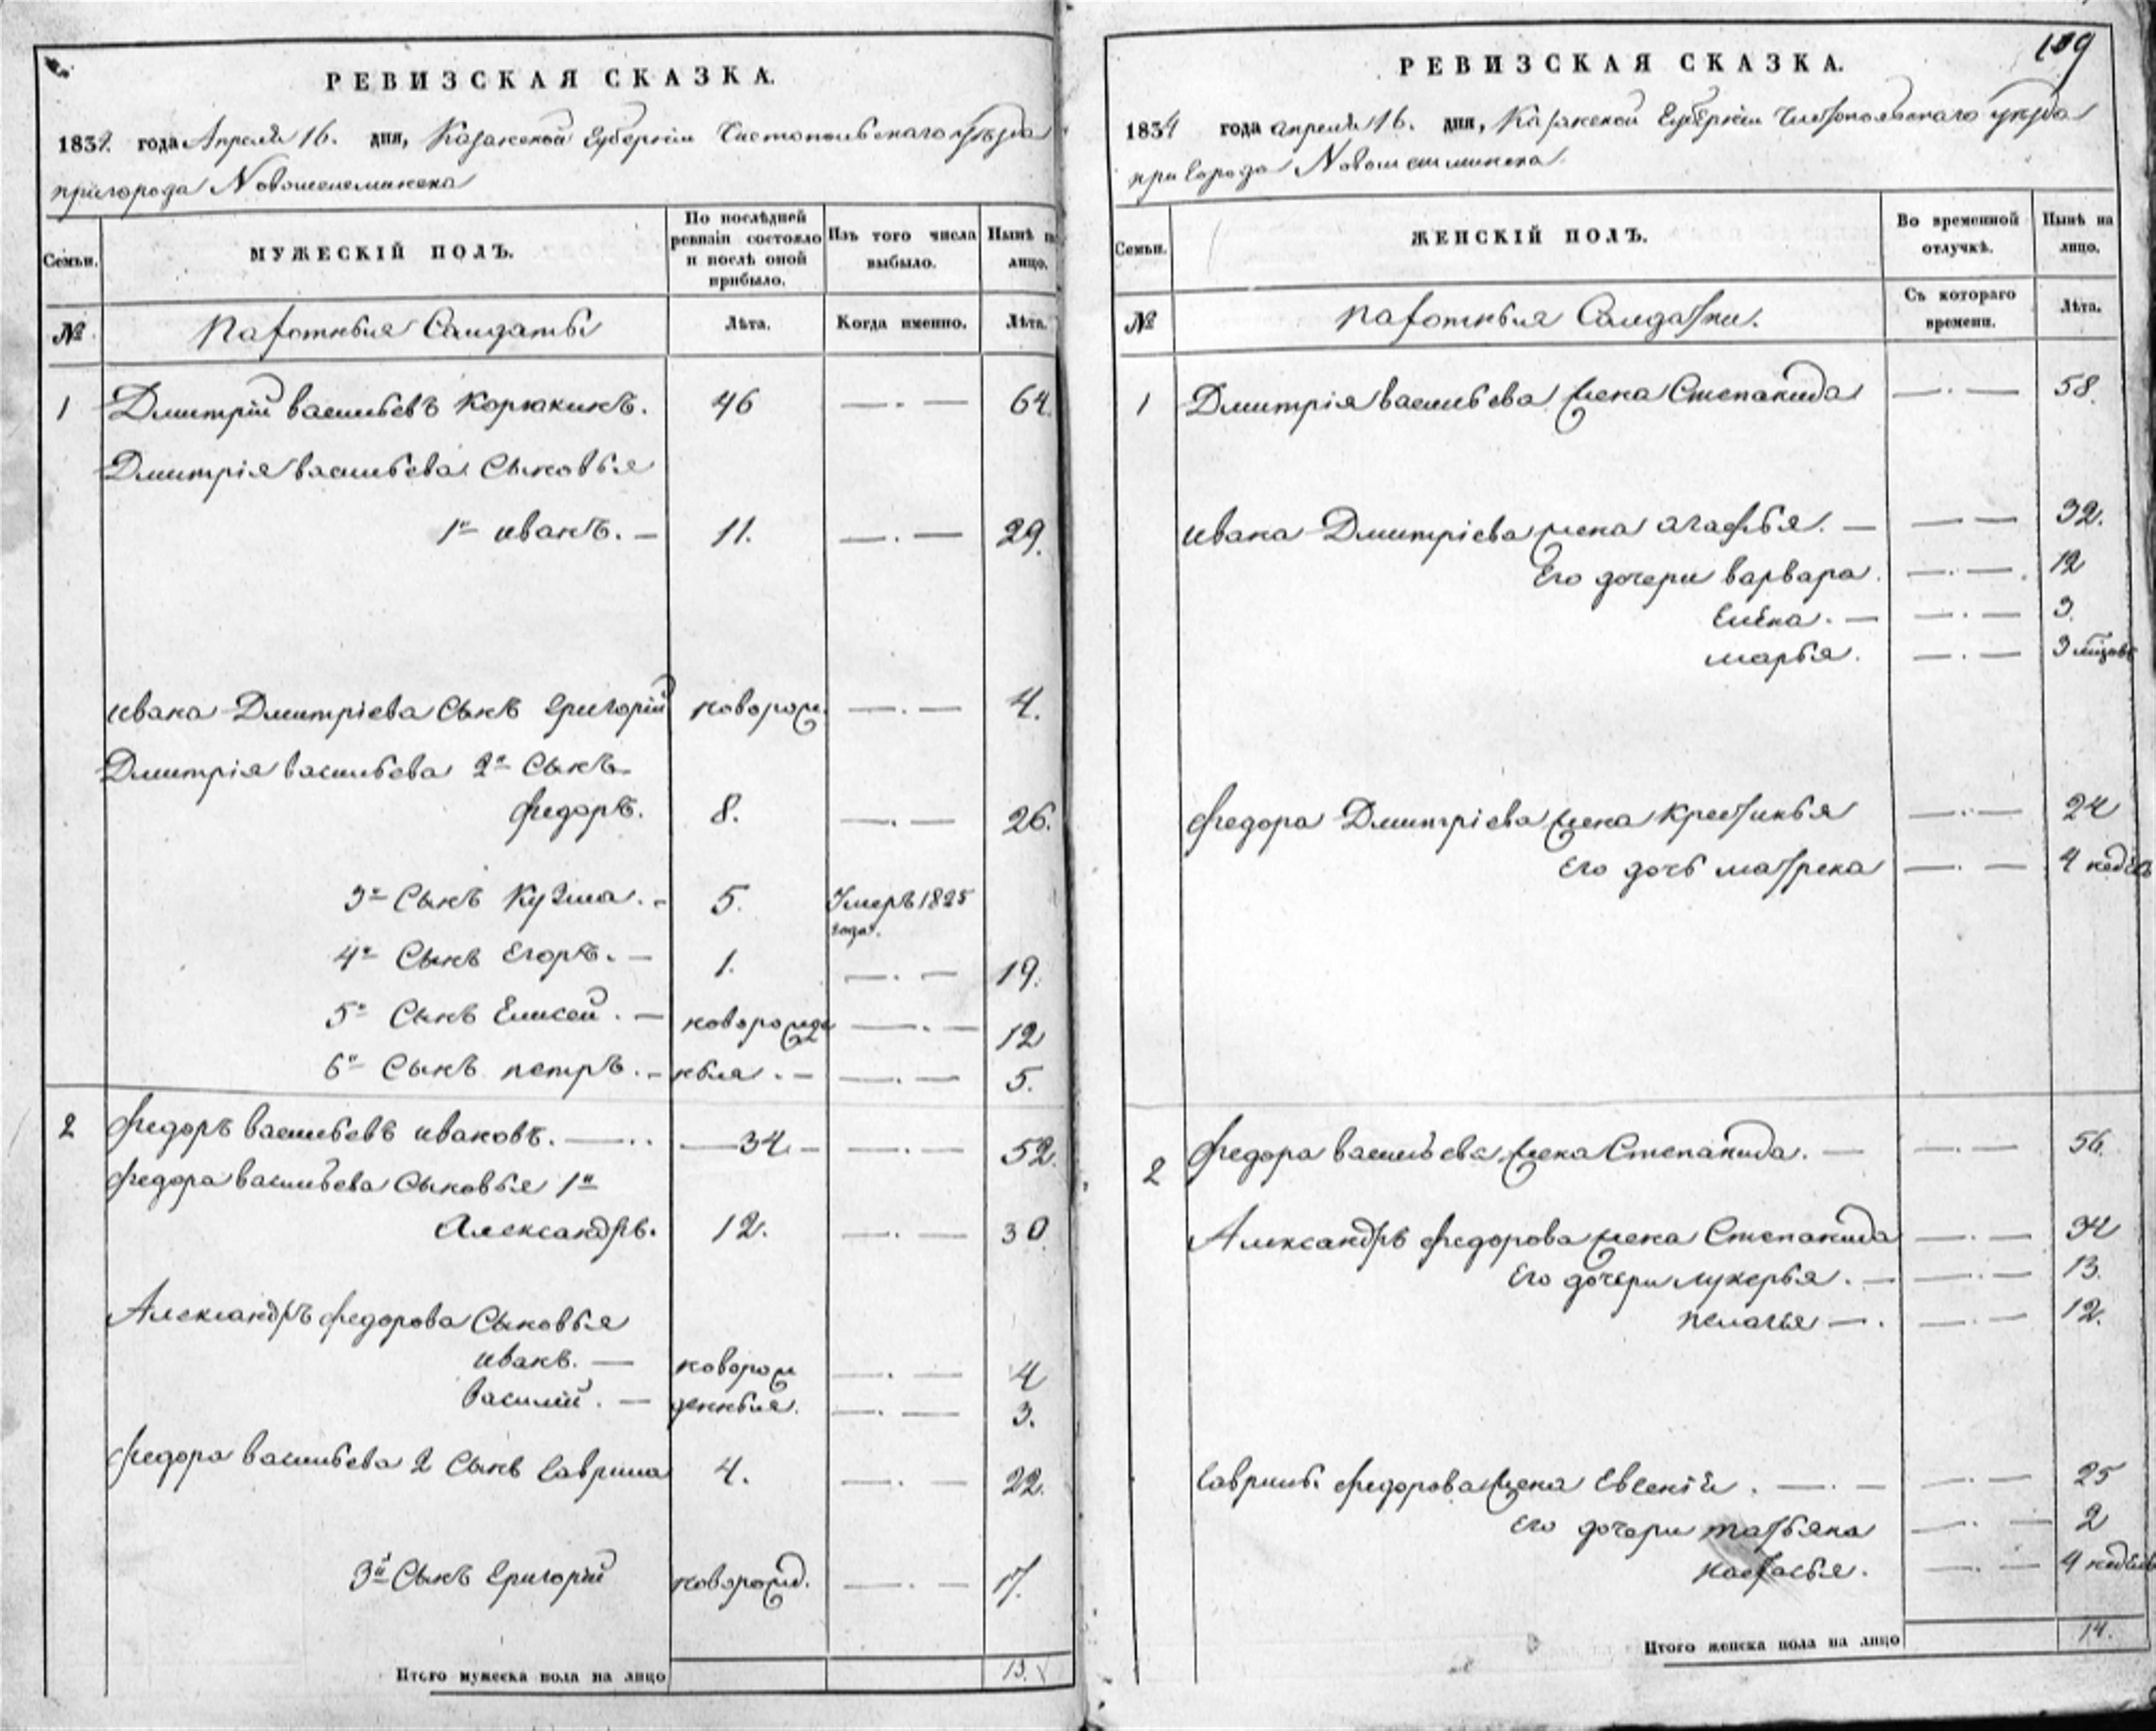 РЕВИЗСКАЯ СКАЗКА.
1834 года Апреля 16. дня, Казанской Губернiи Чистопольскаго уѣзда
пригорода Новошешминска
Семьи.
МУЖЕСКIЙ ПОЛЪ.
По послѣдней ревизiи состояло и послѣ оной прибыло.
Изъ того числа выбыло.
Нынѣ на лицо.
№
Пахотныя Салдаты
Лѣта.
Когда именно.
Лѣта.
1 Дмитрiй васильевъ Корюкинъ. 46 —.— 64.
Дмитрiя васильева Сыновья
1й иванъ. — 11. —.— 29.
ивана Дмитрiева Сынъ Григорiй новорож. —.— 4.
Дмитрiя васильева 2й Сынъ
федоръ. 8. —.— 26.
3й Сынъ Кузма. - 5. Умеръ 1825 года.
4й Сынъ Егоръ. — 1. —.— 19.
5й Сынъ Елисей. — новорожде —.— 12
6й Сынъ петръ. - ныя. — —.— 5.
2 федоръ васильевъ ивановъ. —.. —34- —.— 52.
федора васильева Сыновья 1й
Александръ. 12. —.— 30
Александръ федорова Сыновья
иванъ. — новорож —.— 4
василiй. — денныя. —.— 3.
федора васильева 2 Сынъ Гаврила 4. —.— 22.
3й Сынъ Григорiй новорожд. —.— 17.
Итого мужеска пола на лицо 13.
109
РЕВИЗСКАЯ СКАЗКА.
1834 года апреля 16. дня, Казанской Губернiи Чистопольскаго уѣзда
пригорода Новошешминска
Семьи.
ЖЕНСКIЙ ПОЛЪ.
Во временной отлучкѣ.
Нынѣ на лицо.
№
Пахотныя Салдатки.
Съ котораго времени.
Лѣта.
1 Дмитрiя васильева жена Степанида —.— 58.
ивана Дмитрiева жена агафья. — —.— 32.
Его дочери варвара. —.—. 12
Елена. — —.— 3.
марья. —.— 3 мѣсяцовъ
федора Дмитрiева жена Крестинья —.— 24
Его дочь матрена —.— 4 недѣль
2 федора васильева жена Степанида. — —.— 56.
Александръ федорова жена Степанида —.— 34
Его дочери лукерья. — —.— 13.
пелагѣя —. —.— 12.
Гаврилы федорова жена Евгенiя. —.— —.— 25
Его дочери татьяна —.— 2
настасья. —.— 4 недѣль
Итого женска пола на лицо 14.